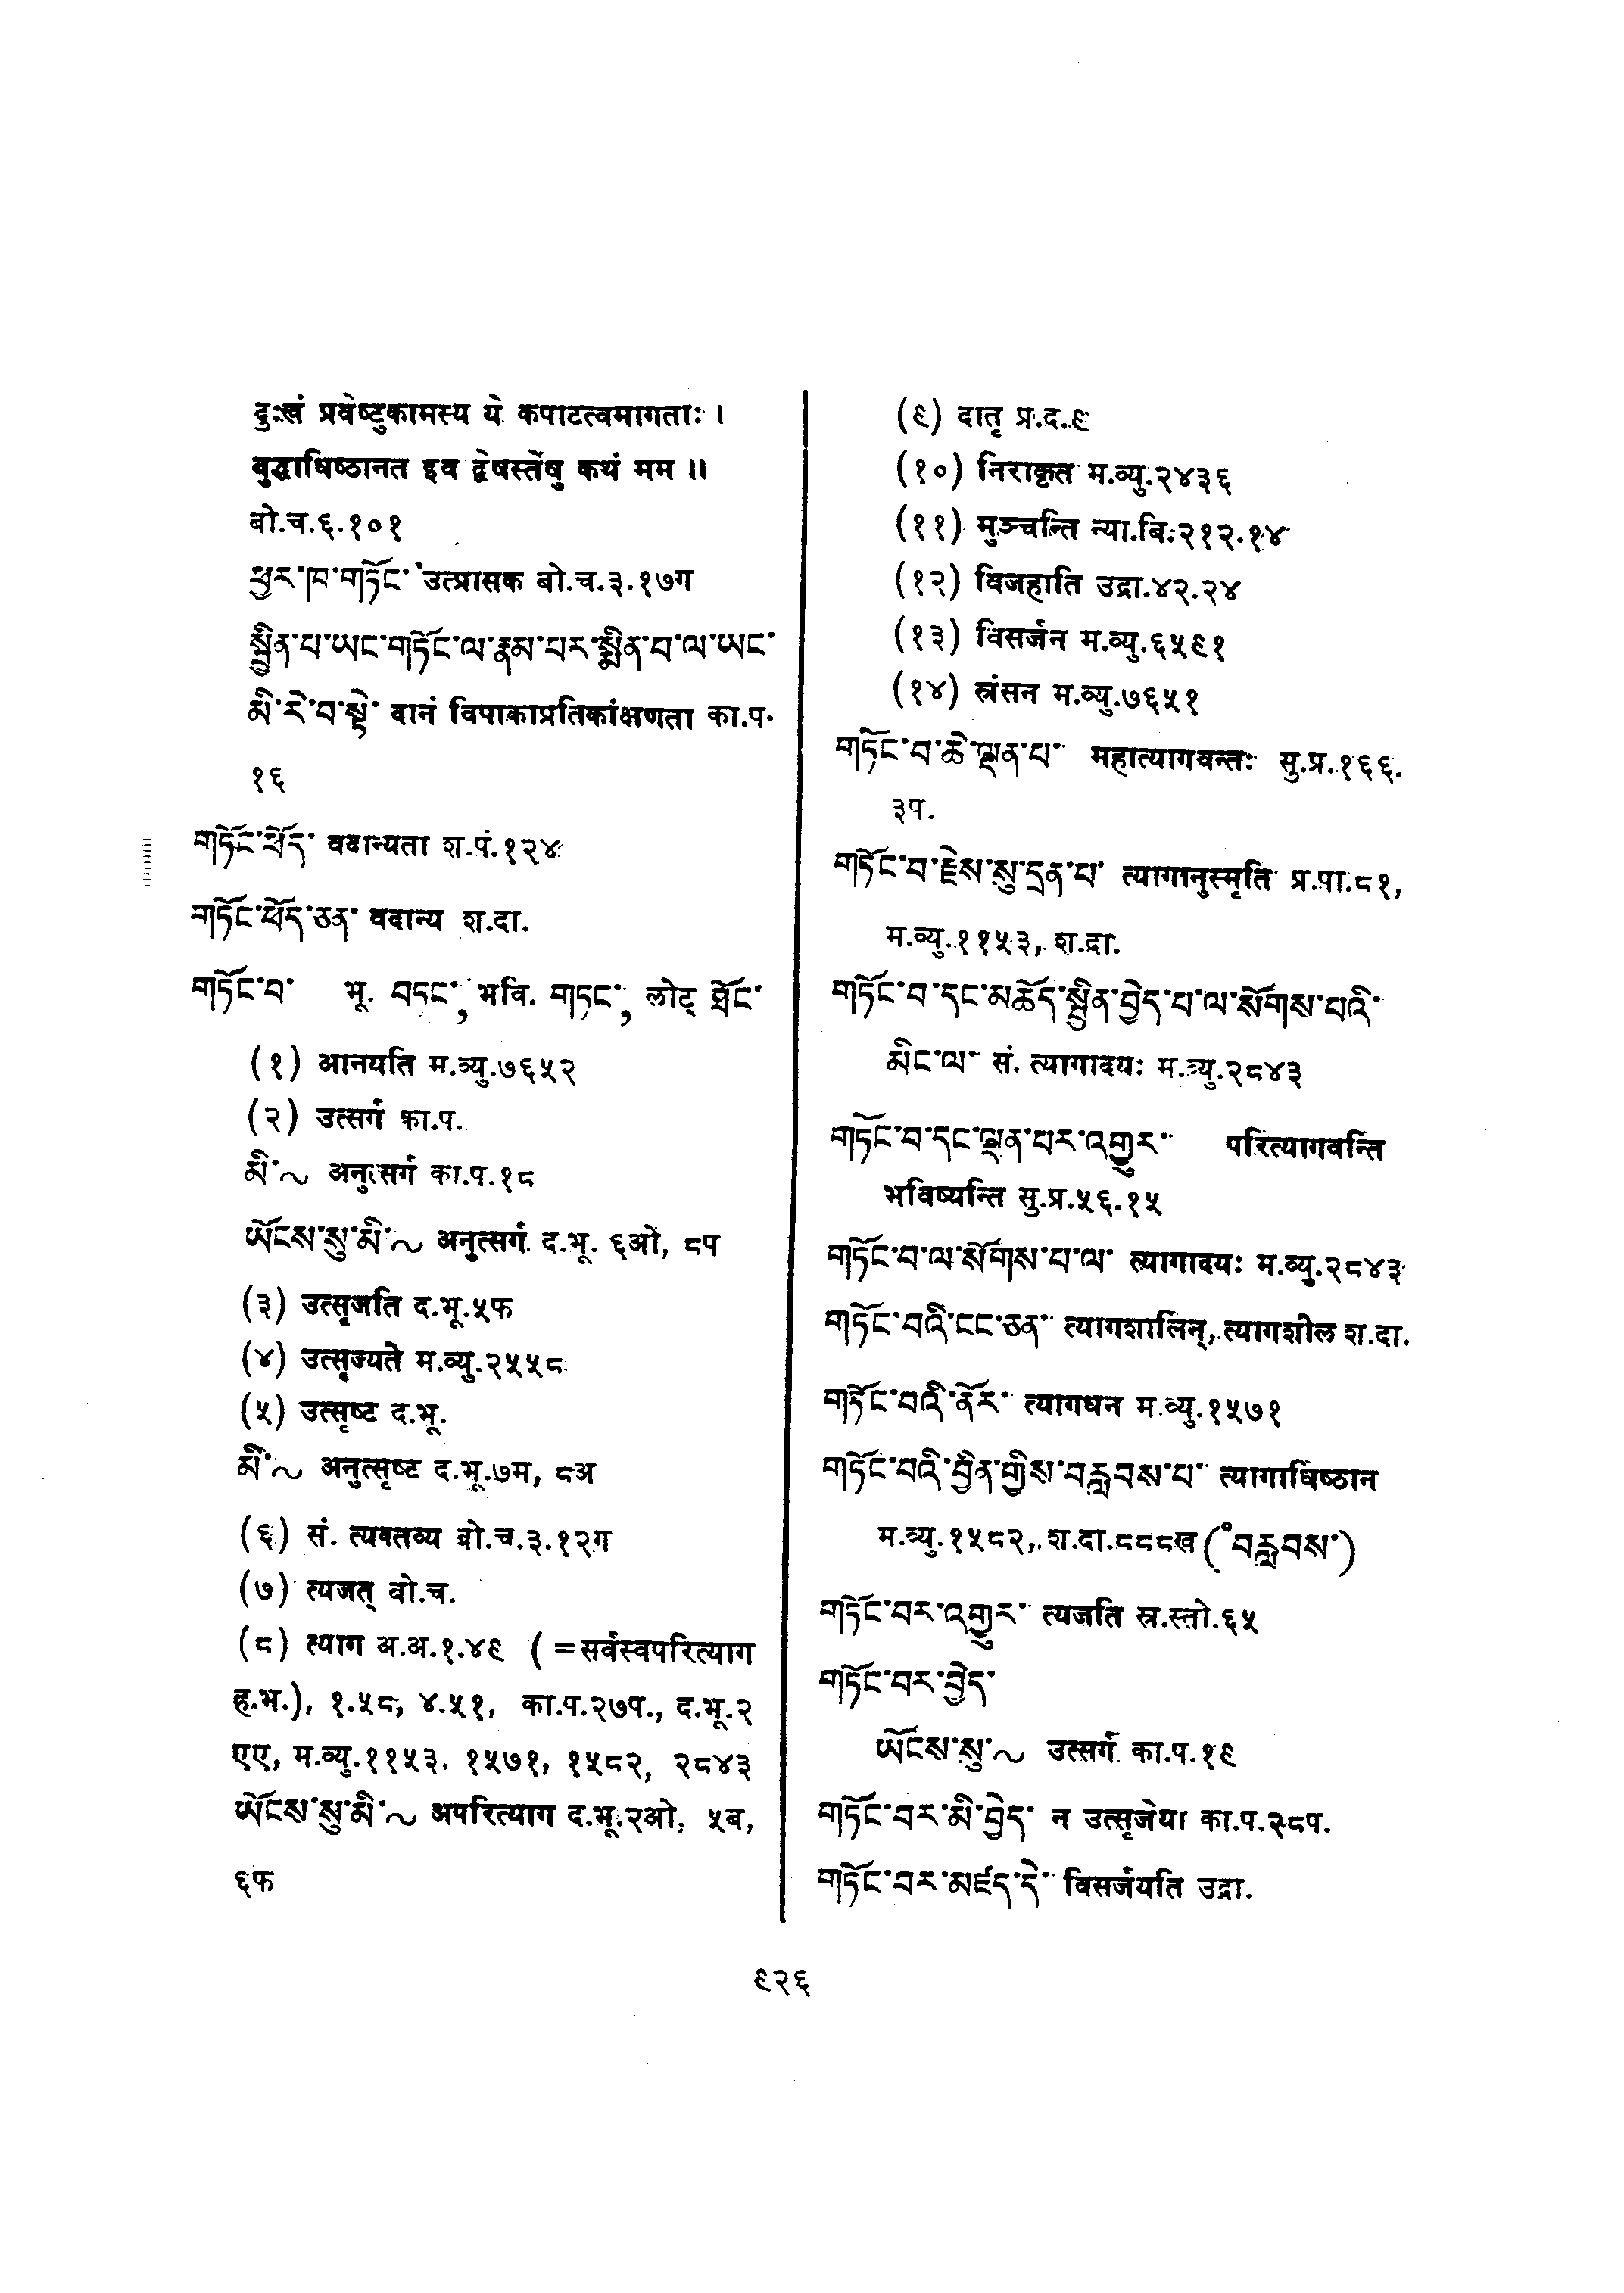 दुःखं प्रवेष्टुकामस्य ये कपाटत्वमागताः ।
बुद्धाधिष्ठानत इव द्वेषस्तेषु कथं मम ॥
बो.च.६.१०१
ཕྱར་ཁ་གཏོང་ उत्प्रासक बो.च.३.१७ग
སྦྱིན་པ་ཡང་གཏོང་ལ་རྣམ་པར་སྨིན་པ་ལ་ཡང་
མི་རེ་བ་སྟེ་ दानं विपाकाप्रतिकांक्षणता का.प.
१६
གཏོང་ཕོད་ वदान्यता श.पं.१२४
གཏོང་ཕོད་ཅན་ वदान्य श.दा.
གཏོང་བ་ भू. བཏང་, भवि. གཏང་, लोट् ཐོང་
(१) आनयति म.व्यु.७६५२
(२) उत्सर्ग का.प.
མི་~ अनुत्सर्ग का.प.१८
ཡོངས་སུ་མི་~ अनुत्सर्ग द.भू. ६ओ, ८प
(३) उत्सृजति द.भू.५फ
(४) उत्सृज्यते म.व्यु.२५५८
(५) उत्सृष्ट द.भू.
མི་~ अनुत्सृष्ट द.भू.७म, ८अ
(६) सं. त्यक्तव्य बो.च.३.१२ग
(७) त्यजत् बो.च.
(८) त्याग अ.अ.१.४९ (=सर्वस्वपरित्याग
ह.भ.), १.५८, ४.५१, का.प.२७प., द.भू.२
एए, म.व्यु.११५३, १५७१, १५८२, २८४३
ཡོངས་སུ་མི་~ अपरित्याग द.भू.२ओ, ५ब,
६फ
(९) दातृ प्र.द.९
(१०) निराकृत म.व्यु.२४३६
(११) मुञ्चन्ति न्या.बि.२१२.१४
(१२) विजहाति उद्रा.४२.२४
(१३) विसर्जन म.व्यु.६५९१
(१४) स्रंसन म.व्यु.७६५१
གཏོང་བ་ཆེ་ལྡན་པ་ महात्यागवन्तः सु.प्र.१६६.
३प.
གཏོང་བ་རྗེས་སུ་དྲན་པ་ त्यागानुस्मृति प्र.पा.८१,
म.व्यु.११५३, श.दा.
གཏོང་བ་དང་མཆོད་སྦྱིན་བྱེད་པ་ལ་སོགས་པའི་
མིང་ལ་ सं. त्यागादयः म.व्यु.२८४३
གཏོང་བ་དང་ལྡན་པར་འགྱུར་ परित्यागवन्ति
भविष्यन्ति सु.प्र.५६.१५
གཏོང་བ་ལ་སོགས་པ་ལ་ त्यागादयः म.व्यु.२८४३
གཏོང་བའི་ངང་ཅན་ त्यागशालिन्, त्यागशील श.दा.
གཏོང་བའི་ནོར་ त्यागधन म.व्यु.१५७१
གཏོང་བའི་བྱིན་གྱིས་བརླབས་པ་ त्यागाधिष्ठान
म.व्यु.१५८२, श.दा.८८८ख (°བརླབས་)
གཏོང་བར་འགྱུར་ त्यजति स्र.स्तो.६५
གཏོང་བར་བྱེད་
ཡོངས་སུ་~ उत्सर्ग का.प.१९
གཏོང་བར་མི་བྱེད་ न उत्सृजेया का.प.२८प.
གཏོང་བར་མཛད་དེ་ विसर्जयति उद्रा.
९२६